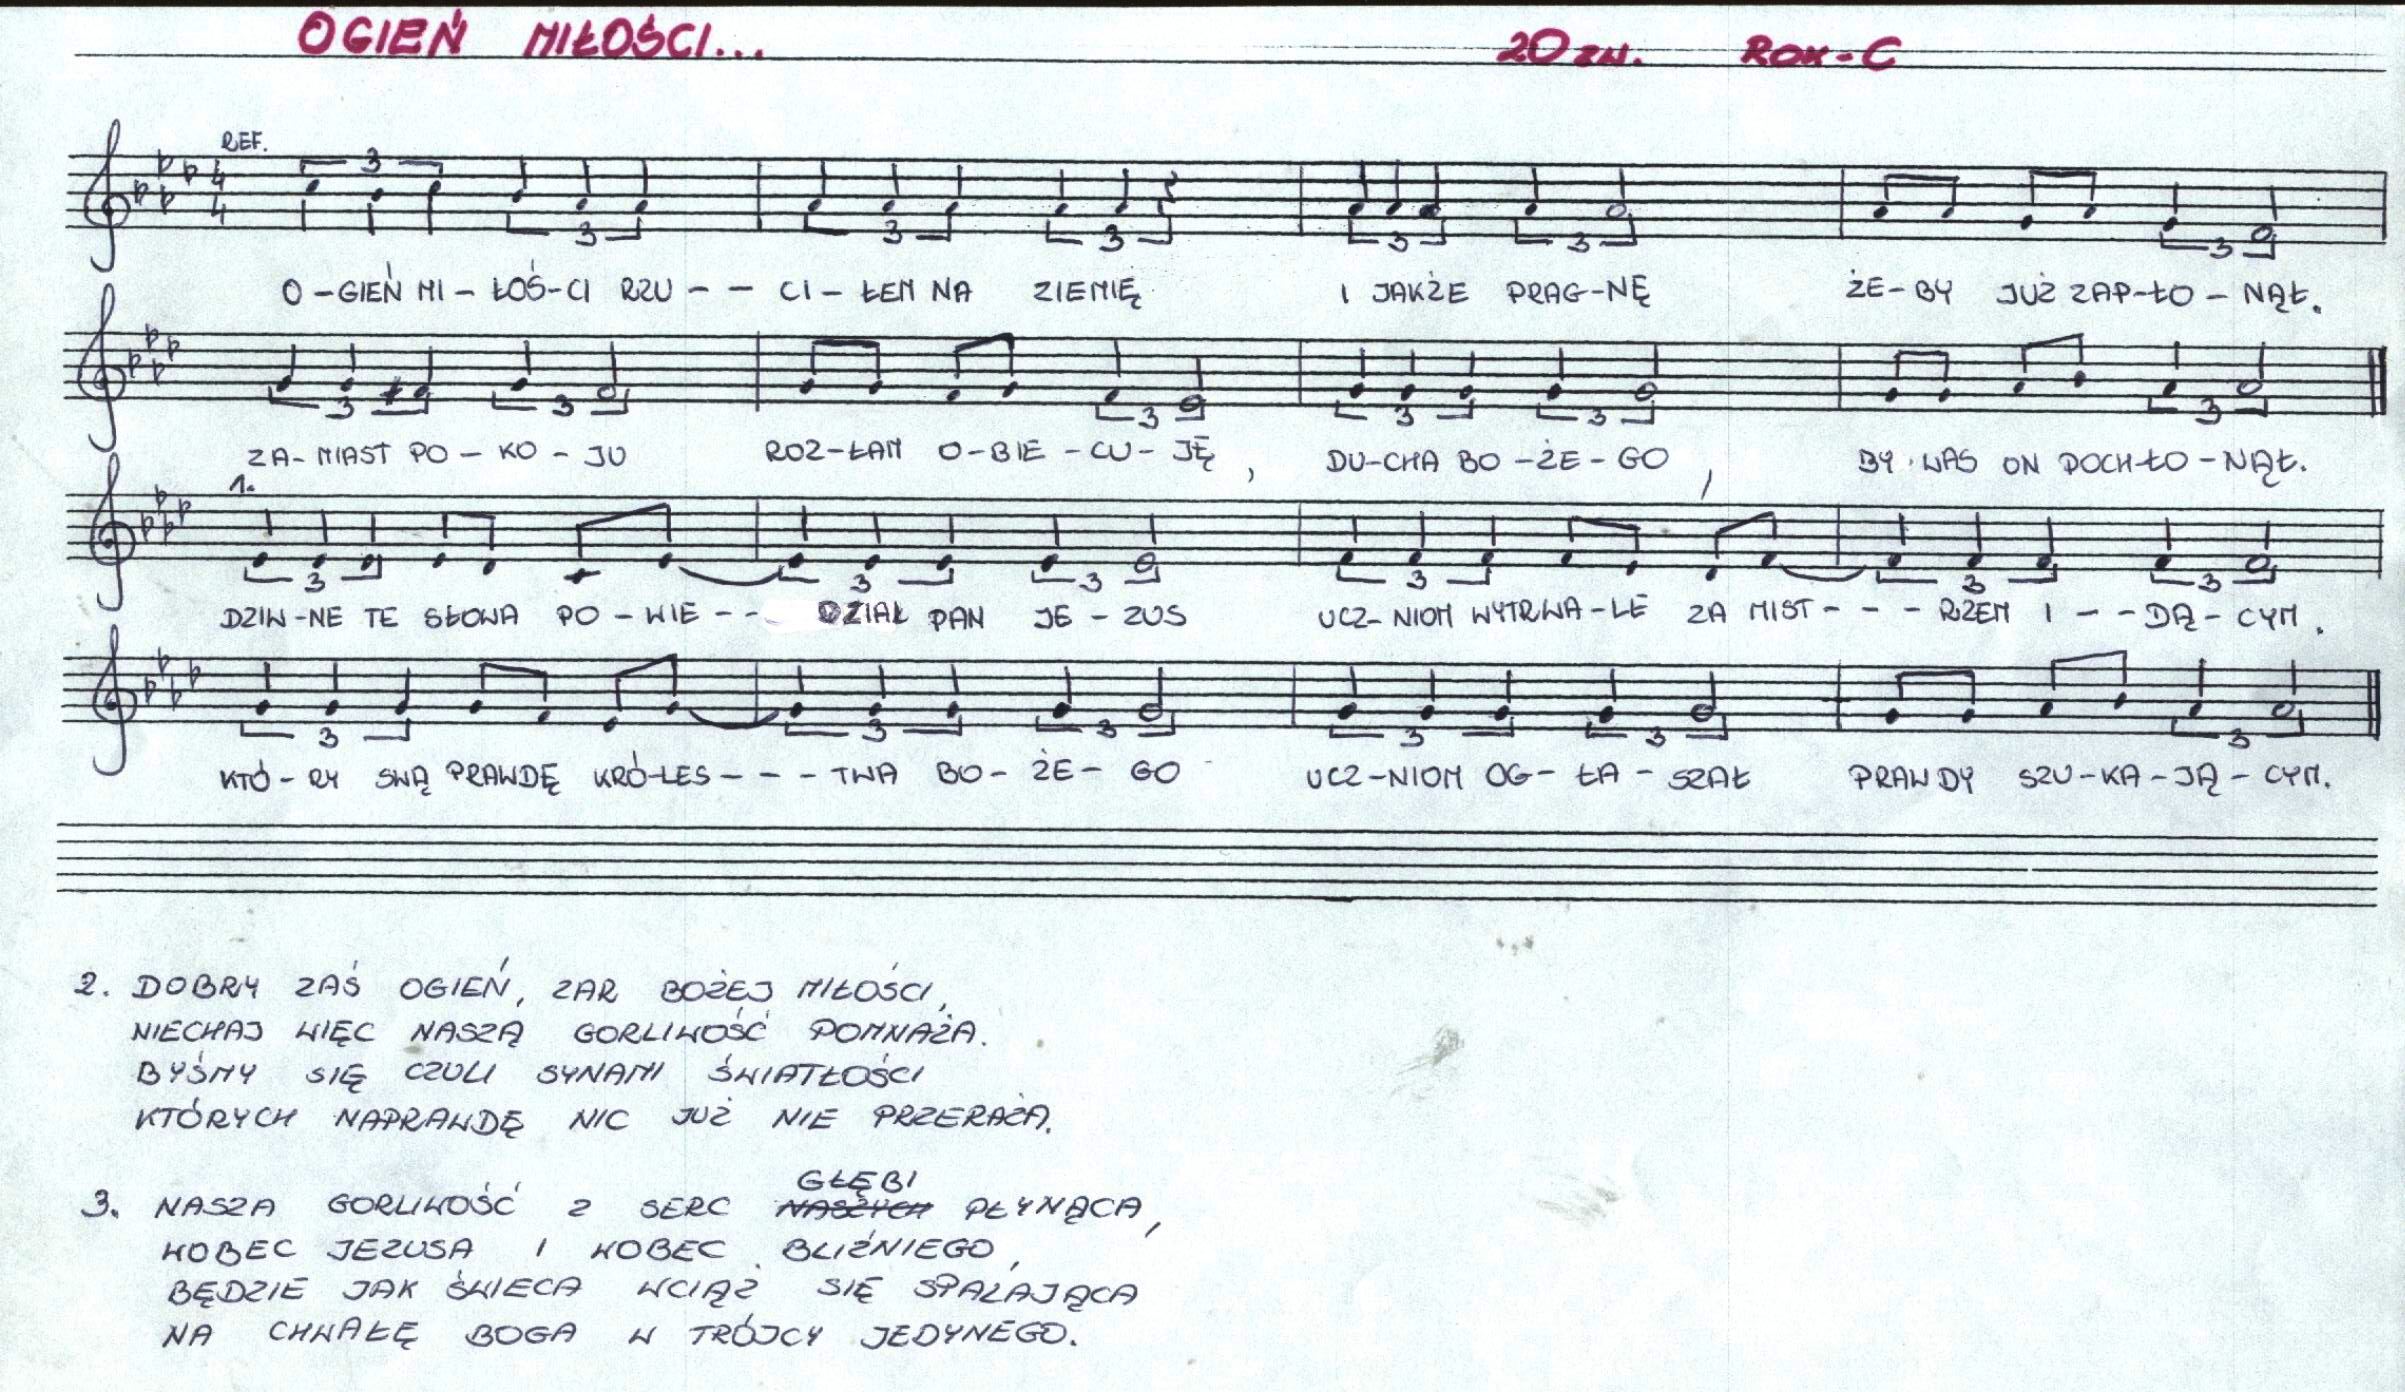 OGIEŃ MIŁOŚCI... 20 ZW. ROK-C
REF.
O-GIEŃ MI-ŁOŚ-CI RZU-- CI-ŁEM NA ZIEMIĘ I JAKŻE PRAG-NĘ ŻE-BY JUŻ ZAP-ŁO-NĄŁ.
ZA-MIAST PO-KO-JU ROZ-ŁAM O-BIE-CU-JĘ, DU-CHA BO-ŻE-GO, BY WAS ON POCH-ŁO-NĄŁ.
1.
DZIW-NE TE SŁOWA PO-WIE-- DZIAŁ PAN JE-ZUS UCZ-NIOM WYTRWA-LE ZA MIST--- RZEM I--DĄ-CYM.
KTÓ-RY SWĄ PRAWDĘ KRÓ-LES---TWA BO-ŻE-GO UCZ-NIOM OG-ŁA-SZAŁ PRAWDY SZU-KA-JĄ-CYM.
2. DOBRY ZAŚ OGIEŃ, ZAR BOŻEJ MIŁOŚCI,
NIECHAJ WIĘC NASZĄ GORLIWOŚĆ POMNAŻA.
BYŚMY SIĘ CZULI SYNAMI ŚWIATŁOŚCI
KTÓRYCH NAPRAWDĘ NIC JUŻ NIE PRZERAŻA.
GŁĘBI
3. NASZA GORLIWOŚĆ Z SERC NASZYCH PŁYNĄCA,
WOBEC JEZUSA I WOBEC BLIŹNIEGO,
BĘDZIE JAK ŚWIECA WCIĄŻ SIĘ SPALAJĄCA
NA CHWAŁĘ BOGA W TRÓJCY JEDYNEGO.